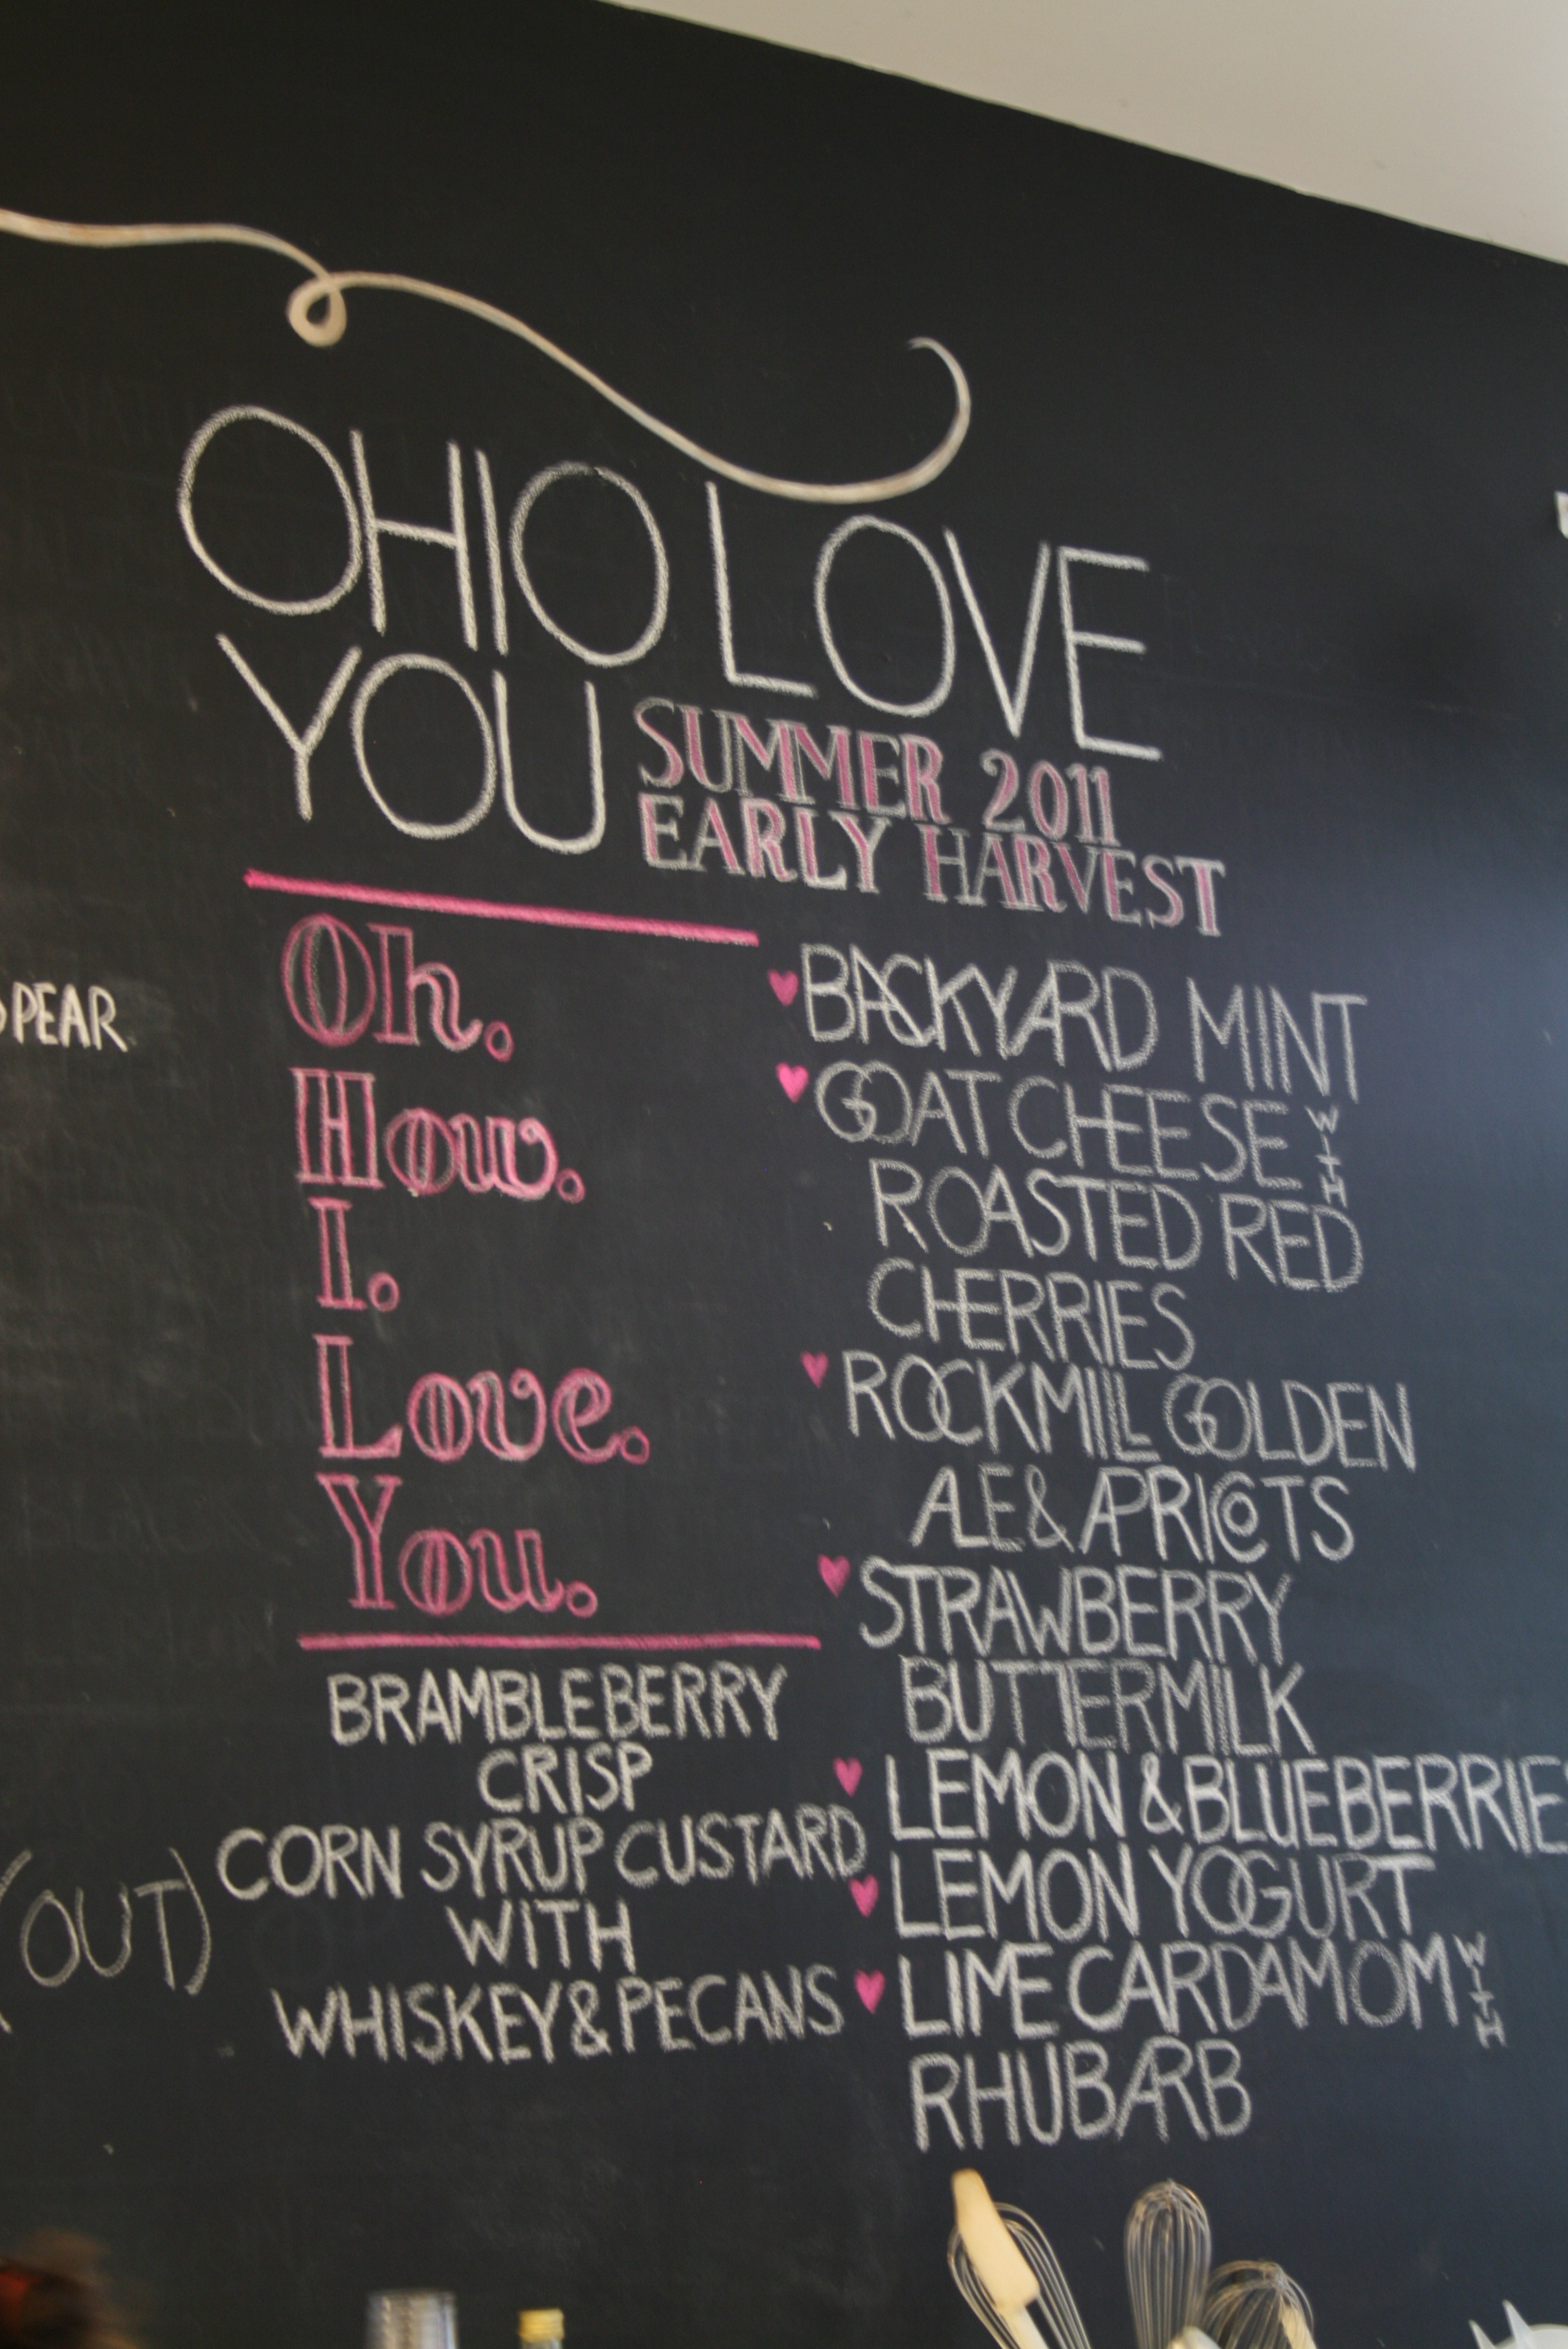 OHIO LOVE
YOU
SUMMER 2011
EARLY HARVEST
PEAR
Oh.
How.
I.
Love.
You.
BRAMBLEBERRY
CRISP
CORN SYRUP CUSTARD
WITH
WHISKEY & PECANS
(OUT)
BACKYARD MINT
GOAT CHEESE WITH
ROASTED RED
CHERRIES
ROCKMILL GOLDEN
ALE & APRICOTS
STRAWBERRY
BUTTERMILK
LEMON & BLUEBERRIES
LEMON YOGURT
LIME CARDAMOM WITH
RHUBARB